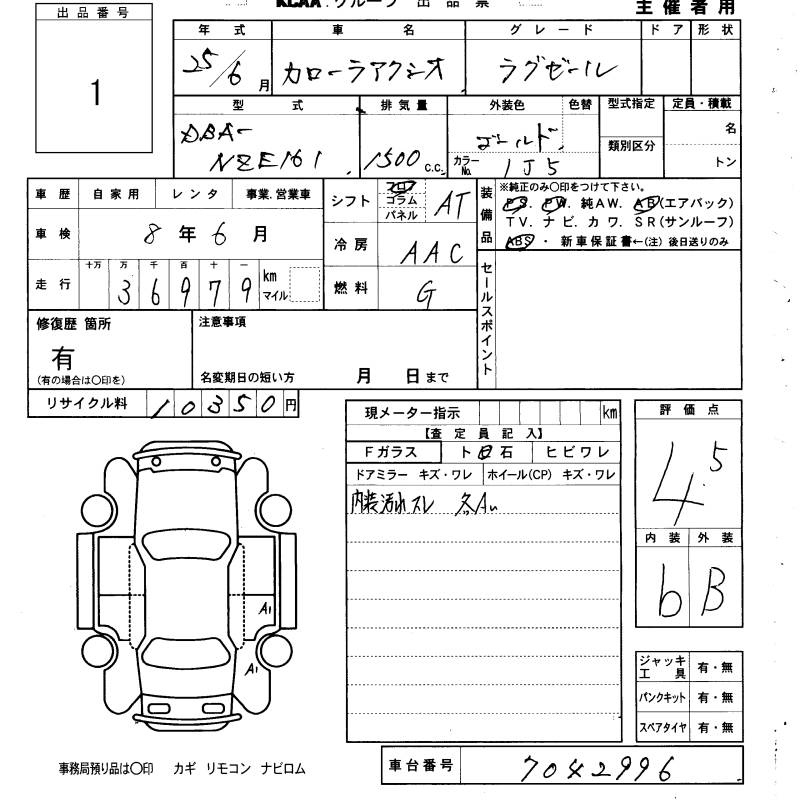 KCAA.グループ 出品票
主催者用
出品番号
1
年式 車名 グレード ドア 形状
25/6月 カローラアクシオ ラグゼール
型式 排気量 外装色 色替 型式指定 定員・積載
DBA-NZE161 1500c.c. ゴールド 名
類別区分
カラーNo. 1J5 トン
車歴 自家用 レンタ 事業.営業車
車検 8年6月
走行 十万 万 千 百 十 一
36979 km マイル
シフト フロア コラム パネル AT
冷房 AAC
燃料 G
装備品 ※純正のみ〇印をつけて下さい。
PS. PW. 純AW. AB(エアバック)
TV. ナビ. カワ. SR(サンルーフ)
ABS ・ 新車保証書←(注) 後日送りのみ
セールスポイント
修復歴 箇所
有
(有の場合は〇印を)
注意事項
名変期日の短い方 月 日まで
リサイクル料 10350円
現メーター指示 km
【査定員記入】
Fガラス ト石 ヒビワレ
ドアミラー キズ・ワレ ホイール(CP) キズ・ワレ
内装汚れスレ
評価点
4.5
内装 外装
b B
A1
A1
ジャッキ工具 有・無
パンクキット 有・無
スペアタイヤ 有・無
事務局預り品は〇印 カギ リモコン ナビロム
車台番号 7042996